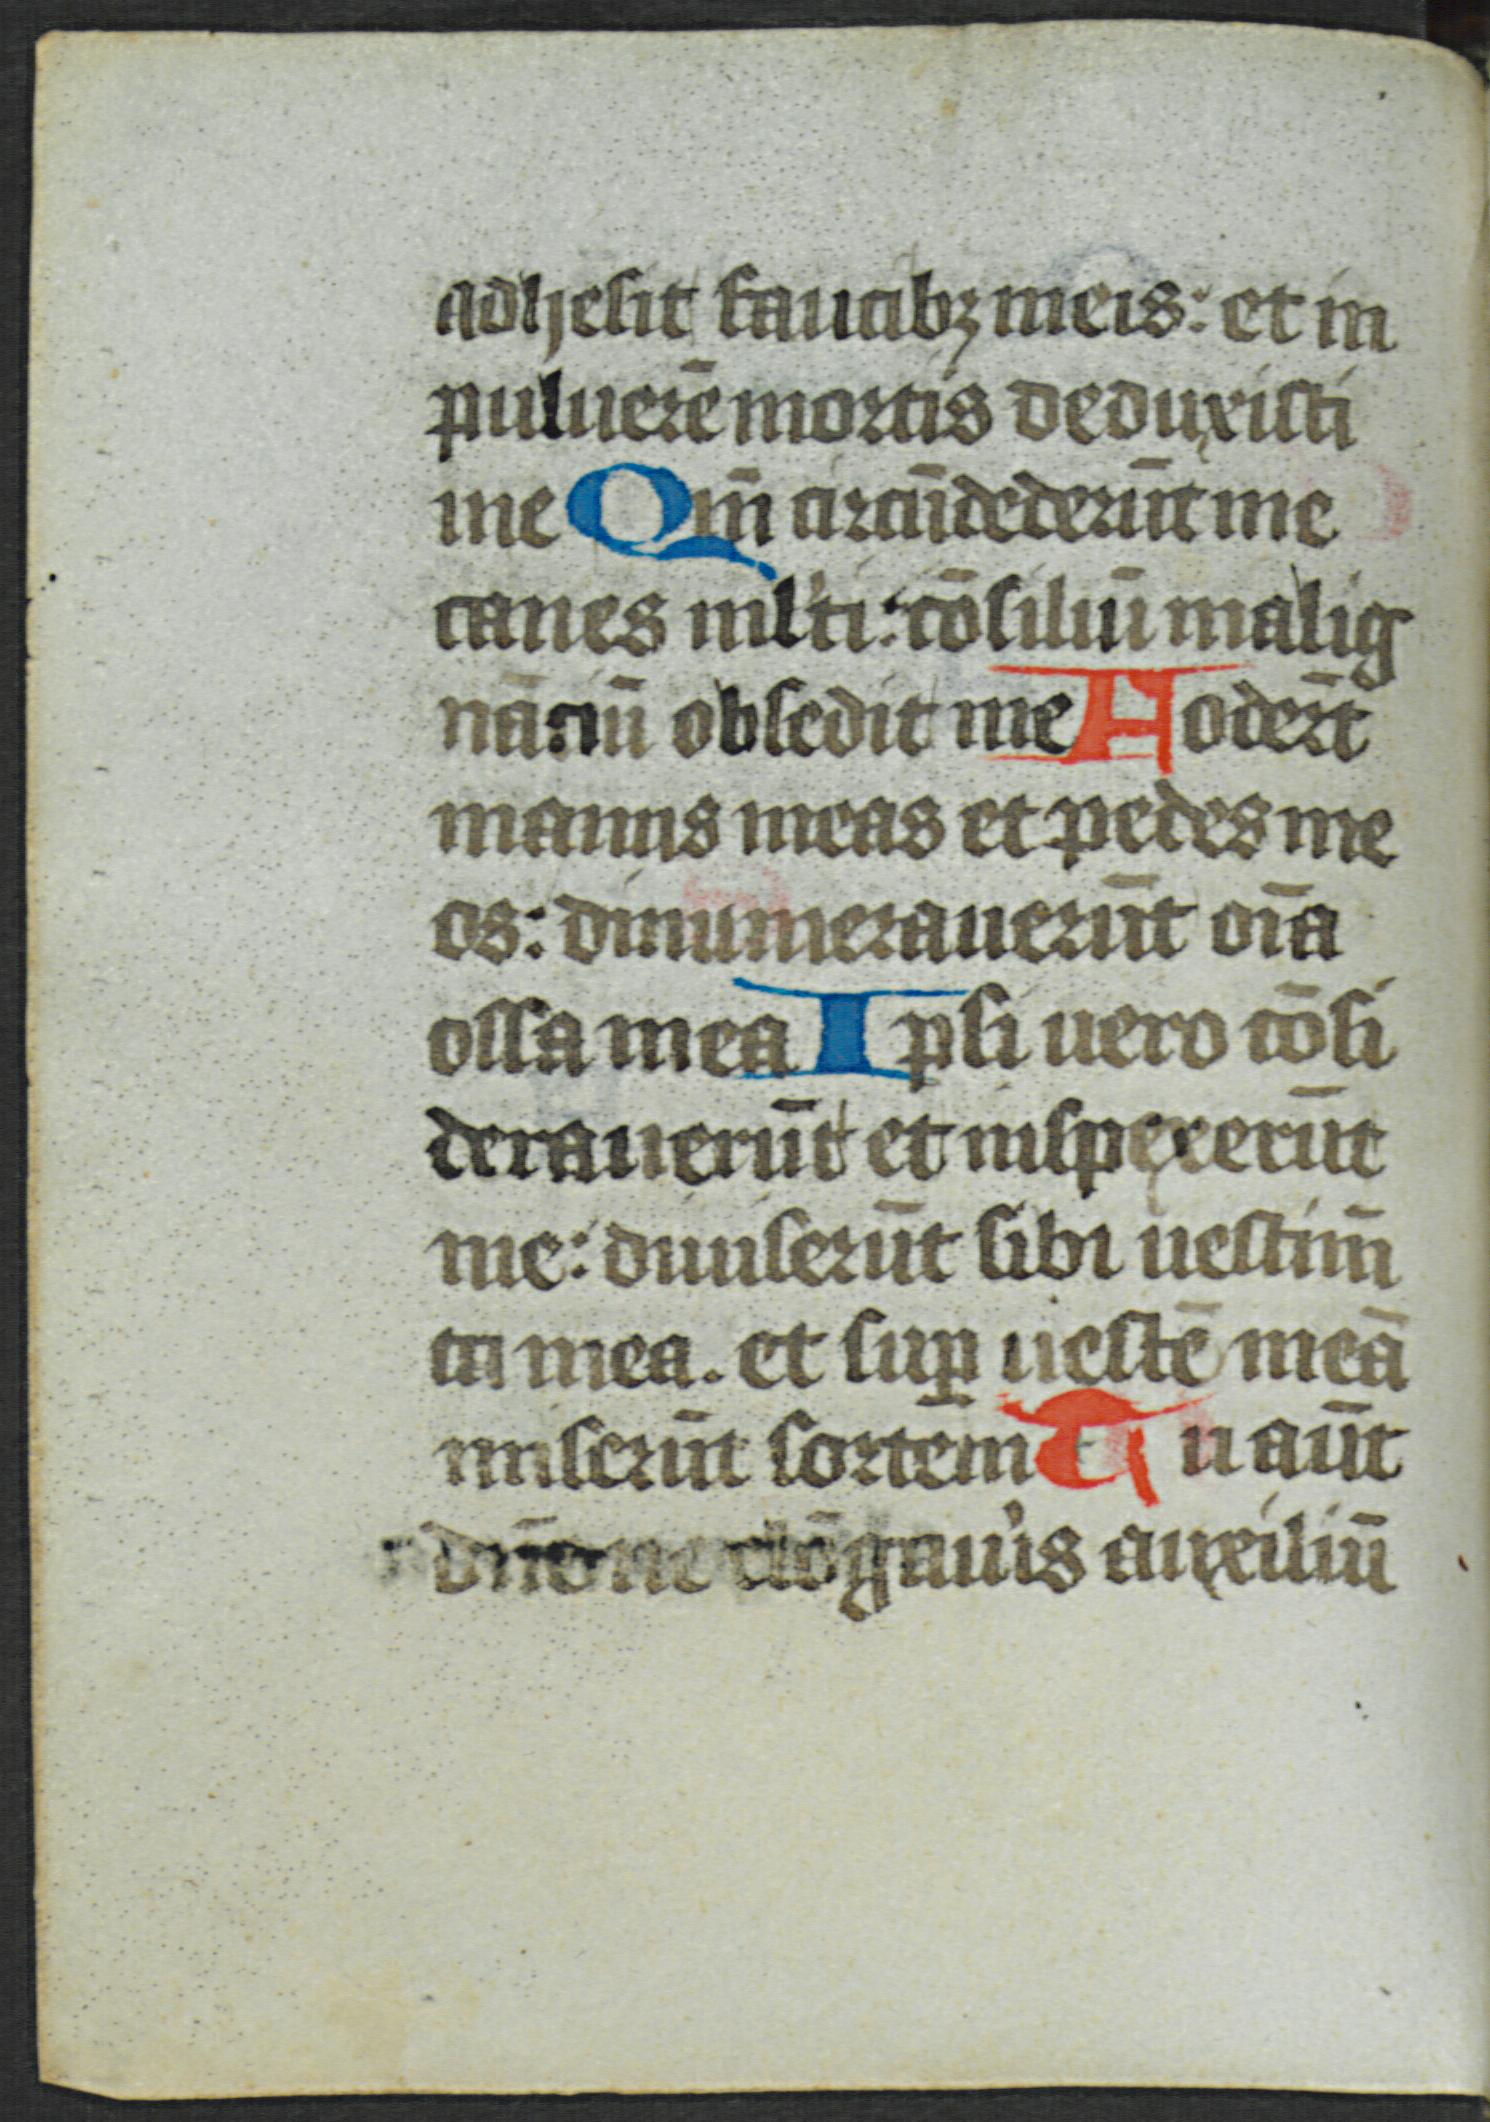 adhesit faucibꝫ meis: et in
puluerē mortis deduxisti
me Qm̄ circūdederūt me
canes ml'ti: cōsiliū malig
nātiū obsedit me Foder̄t
manus meas et pedes me
os: dinumerauerūt oīa
ossa mea Ipsi uero cōsi
derauerūt et inspexerūt
me: diuiserūt sibi uestim̄
ta mea. et suꝑ uestē meā
miserūt sortem Tu aūt
dn̄e ne elōgau'is auxiliū